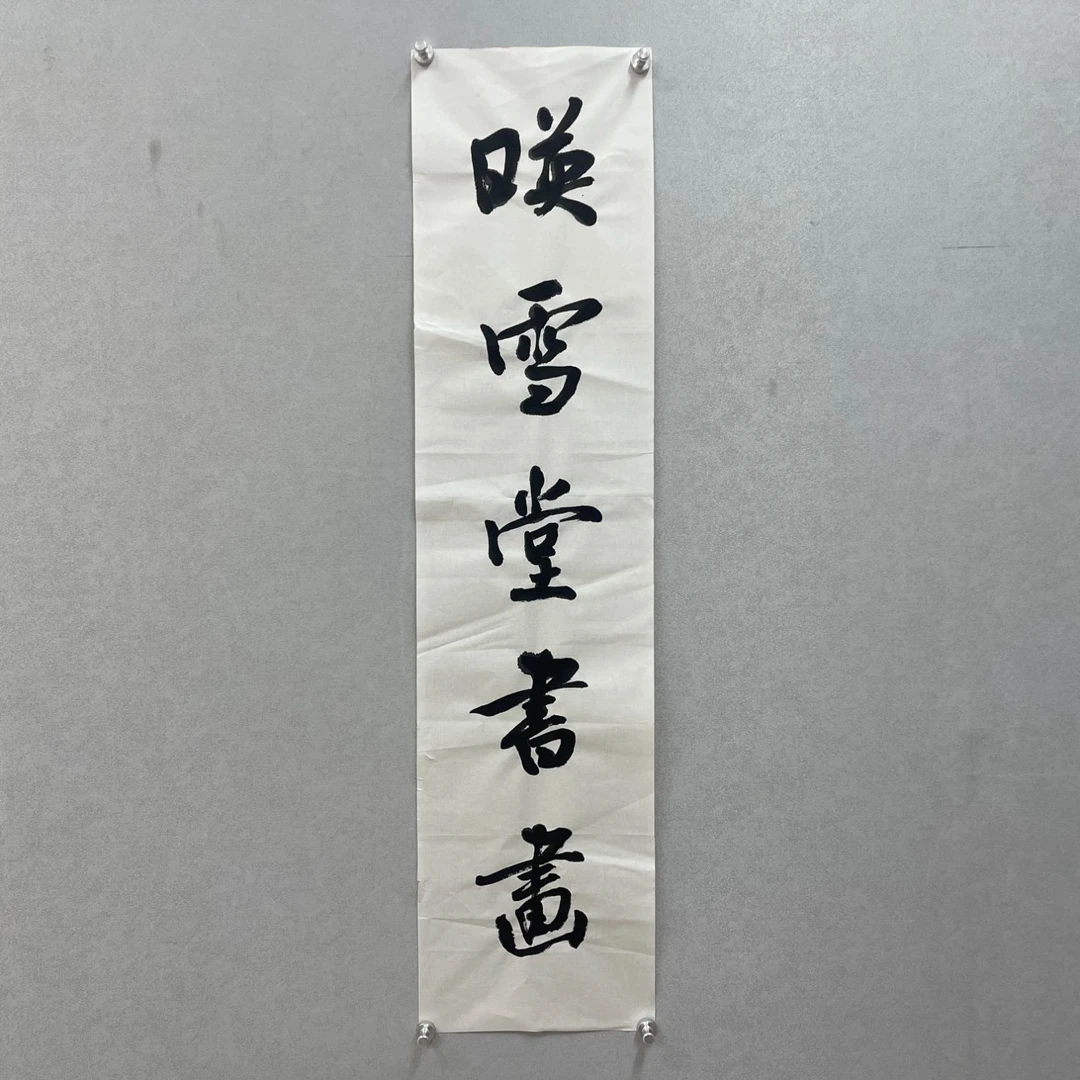 暎雪堂書畫